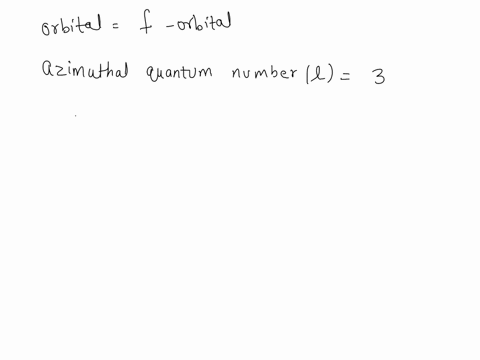 orbital = f -orbital
azimuthal quantum number (l) = 3